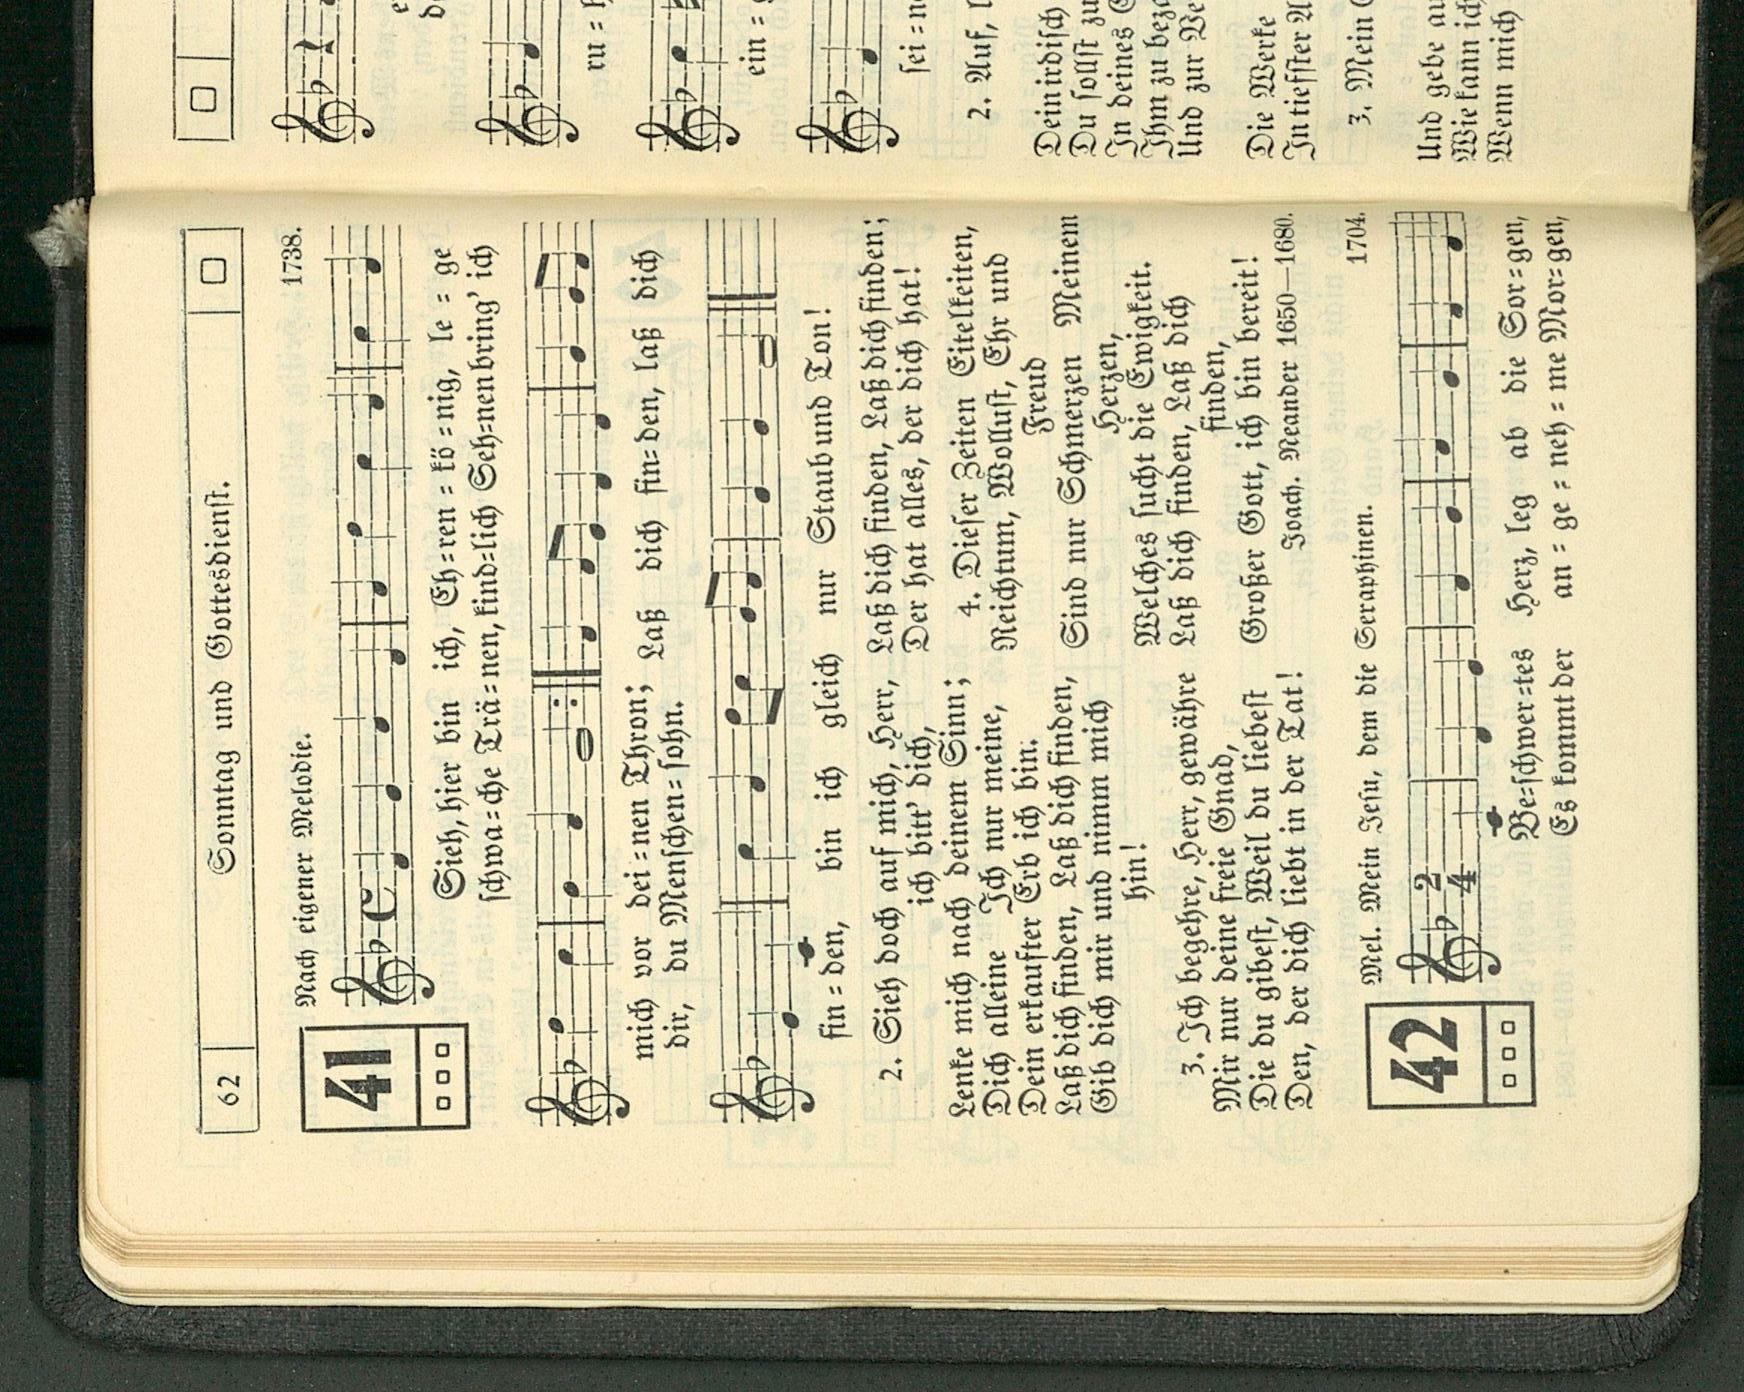 62
Sonntag und Gottesdienst.
41
Nach eigener Melodie.
1738.
Sieh, hier bin ich, Eh=ren = kö=nig, le = ge
schwa=che Trä=nen, kind=lich Seh=nen bring' ich
mich vor dei=nen Thron; Laß dich fin=den, laß dich
dir, du Menschen=sohn.
fin = den, bin ich gleich nur Staub und Ton!
2. Sieh doch auf mich, Herr,
ich bitt' dich,
Lenke mich nach deinem Sinn;
Dich alleine Ich nur meine,
Dein erkaufter Erb ich bin.
Laß dich finden, Laß dich finden,
Gib dich mir und nimm mich
hin!
3. Ich begehre, Herr, gewähre
Mir nur deine freie Gnad,
Die du gibest, Weil du liebest
Den, der dich liebt in der Tat!
Laß dich finden, Laß dich finden;
Der hat alles, der dich hat!
4. Dieser Zeiten Eitelkeiten,
Reichtum, Wollust, Ehr und
Freud
Sind nur Schmerzen Meinem
Herzen,
Welches sucht die Ewigkeit.
Laß dich finden, Laß dich
finden,
Großer Gott, ich bin bereit!
Joach. Neander 1650—1680.
42
Mel. Mein Jesu, dem die Seraphinen.
1704.
2
4
Be=schwer=tes Herz, leg ab die Sor=gen,
Es kommt der an = ge = neh = me Mor=gen,
e
d
ru =
ein =
sei = n
2. Auf, l
Dein irdisch
Du sollst zu
In deines G
Ihm zu beza
Und zur We
Die Werke
In tiefster A
3. Mein G
Und gebe au
Wie kann ich
Wenn mich